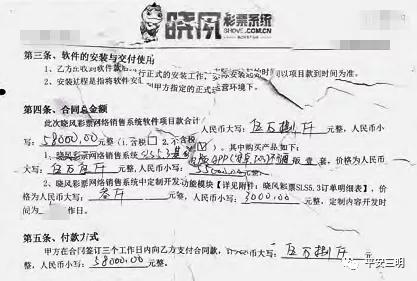 晓风彩票系统
WWW.SHOVE.COM
第三条、软件的安装与交付使用
1、乙方在收到软件款 行正式的安装工作, 际安装 的时 以项目款到时间为准。
安装过程是指将软件安 到甲方指定的正式 营环境下。
第四条、合同总金额
此次晓风彩票网络销售系统软件项目款合计 人民币大写:伍万捌仟 元整,人民币小
写:58000.00 元整(1.含税 2.不含税 )。其中购买产品如下:
1、晓风彩票网络销售系统SLS5.3 版APP( 版 壹 套,价格为人民币
大写:伍万伍仟 元整,人民币小写:55000.00 元整。
2、晓风彩票网络销售系统中定制开发功能模块【详见附件:晓风彩票SLS5.3订单明细表】,价
格为人民币大写:叁仟 元整,人民币小写:3000.00 元整,定制内容开发时
间为 作日。
第五条、付款方式
甲方在合同签订三个工作日内向乙方支付合同款, 币大写:伍万捌仟 元
整,人民币小写:58000.00 元整。
平安三明